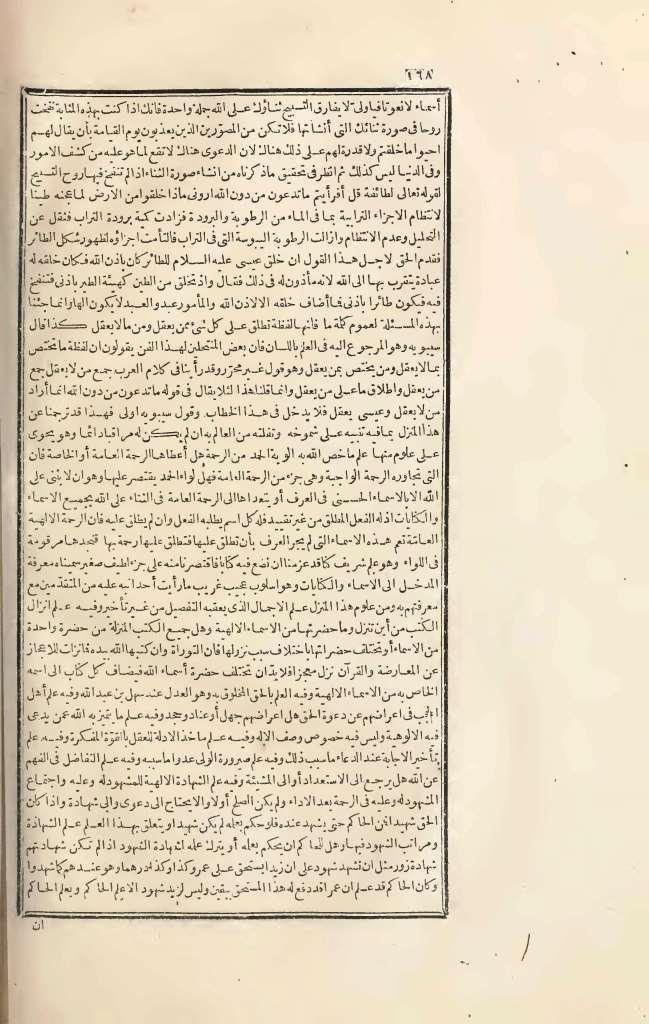 ١٦٨
أسماء لانعوتا فياولى لا يفارق التسبيح ثناؤك على الله جملة واحدة فانك اذا كنت بهذه المثابة نفخت
روحا فى صورة ثنائك التى أنشأتها فلا تكن من المصوّرين الذين يعذبون يوم القيامة بأن يقال لهم
احيوا ما خلقتم ولا قدرة لهم على ذلك هنالك لان الدعوى هناك لا تقع لما هو عليه من كشف الامور
وفى الدنيا ليس كذلك ثم انظر فى تحقيق ما ذكرناه من انشاء صورة الثناء اذا لم تنفخ فيها روح التسبيح
لقوله تعالى لطائفة قل أفرأيتم ما تدعون من دون الله ارونى ماذا خلقوا من الارض لما عجنه طينا
لانتظام الاجزاء الترابية بما فى الماء من الرطوبة والبرودة فزادت كمية برودة التراب فنقل عن
التحليل وعدم الانتظام وازالت الرطوبة اليبوسة التى فى التراب فالتأمت اجزاؤه لظهور شكل الطائر
فقدم الحق لاجل هذا القول ان خلق عيسى عليه السلام للطائر كان باذن الله فكان خلقه له
عبادة يتقرب بها الى الله لانه مأذون له فى ذلك فقال واذ تخلق من الطين كهيئة الطير باذنى فتنفخ
فيه فيكون طائرا باذنى فما أضاف خلقه الا لاذن الله والمأمور عبد والعبد لا يكون الها وانما جئنا
بهذه المسئلة لعموم كلمة ما فانها لفظة تطلق على كل شئ ممن يعقل ومن مالا يعقل كذا قال
سيبويه وهو المرجوع اليه فى العلم باللسان فان بعض المنتحلين لهذا الفن يقولون ان لفظة ما تختص
بما لا يعقل ومن يختص بمن يعقل وهو قول غير محرر وقد رأينا فى كلام العرب جمع من لا يعقل جمع
من يعقل واطلاق ما على من يعقل وانما قلنا هذا لئلا يقال فى قوله ما تدعون من دون الله انما أراد
من لا يعقل وعيسى يعقل فلا يدخل فى هذا الخطاب وقول سيبويه اولى فهذا قد ترجمنا عن
هذا المنزل بما فيه تنبيه على شموخه وتفلته من العالم به ان لم يكن له مراقبا دائما وهو يحوى
على علوم منها علم ما خص الله به الوية الحمد من الرحمة هل أعطاها الرحمة العامة أو الخاصة فان
التى تجاوره الرحمة الواجبة وهى جزء من الرحمة العامة فهل لواء الحمد يقتصر عليها وهو ان لا يثنى على
الله الا بالاسماء الحسنى فى العرف أو يتعداها الى الرحمة العامة فى الثناء على الله بجميع الاسماء
والكنايات اذ له الفعل المطلق من غير تقييد فله كل اسم يطلبه الفعل وان لم يطلق عليه فان الرحمة الالهية
العامّة تعم هذه الاسماء التى لم يجر العرف بأن تطلق عليها فتطلق عليها رحمة بها فتجدها مرقومة
فى اللواء وهو علم شريف كنا قد عزمنا ان نضع فيه كتابا فاقتصرنا منه على جزء لطيف صغير سميناه معرفة
المدخل الى الاسماء والكنايات وهو اسلوب عجيب غريب ما رأيت أحدا نبه عليه من المتقدّمين مع
معرفتهم به ومن علوم هذا المنزل علم الاجمال الذى يعقبه التفصيل من غير تأخير وفيه علم انزال
الكتب من أين تنزل وما حضرتها من الاسماء الالهية وهل جميع الكتب المنزلة من حضرة واحدة
من الاسماء أو تختلف حضراتها باختلاف سبب نزولها فان التوراة وان كتبها الله بيده فما نزلت للاعجاز
عن المعارضة والقرآن نزل معجزا فلا بدّ ان تختلف حضرة أسماء الله فيضاف كل كتاب الى اسمه
الخاص به من الاسماء الالهية وفيه العلم بالحق المخلوق به وهو العدل عند سهل بن عبد الله وفيه علم أهل
الحجب فى اعراضهم عن دعوة الحق هل اعراضهم جهل أو عناد وجحد وفيه علم ما يتميز به الله عمن يدعى
فيه الالوهية وليس فيه خصوص وصف الاله وفيه علم مأخذ الادلة للعقل بالقوّة المفكرة وفيه علم
تأخير الاجابة عند الدعاء ما سبب ذلك وفيه علم صيرورة الولى عدوا ما سببه وفيه علم التفاضل فى الفهم
عن الله هل يرجع الى الاستعداد أو الى المشيئة وفيه علم الشهادة الالهية للمشهود له وعليه واجتماع
المشهود له وعليه فى الرحمة بعد الاداء ولم يكن الصلح أولا ولا يحتاج الى دعوى والى شهادة واذا كان
الحق شهيدا فمن الحاكم حتى يشهد عنده فلو حكم بعلمه لم يكن شهيدا ويتعلق بهذا العلم علم الشهادة
ومراتب الشهود فيها وهل للحاكم ان يحكم بعلمه أو يترك علمه لشهادة الشهود اذا لم تكن شهادتهم
شهادة زور مثل ان تشهد شهود على ان زيدا يستحق على عمرو كذا وكذا درهما وهو عندهم كما شهدوا
وكان الحاكم قد علم ان عمرا قد دفع له هذا المستحق بيقين وليس لزيد شهود الا علم الحاكم ويعلم الحاكم
ان